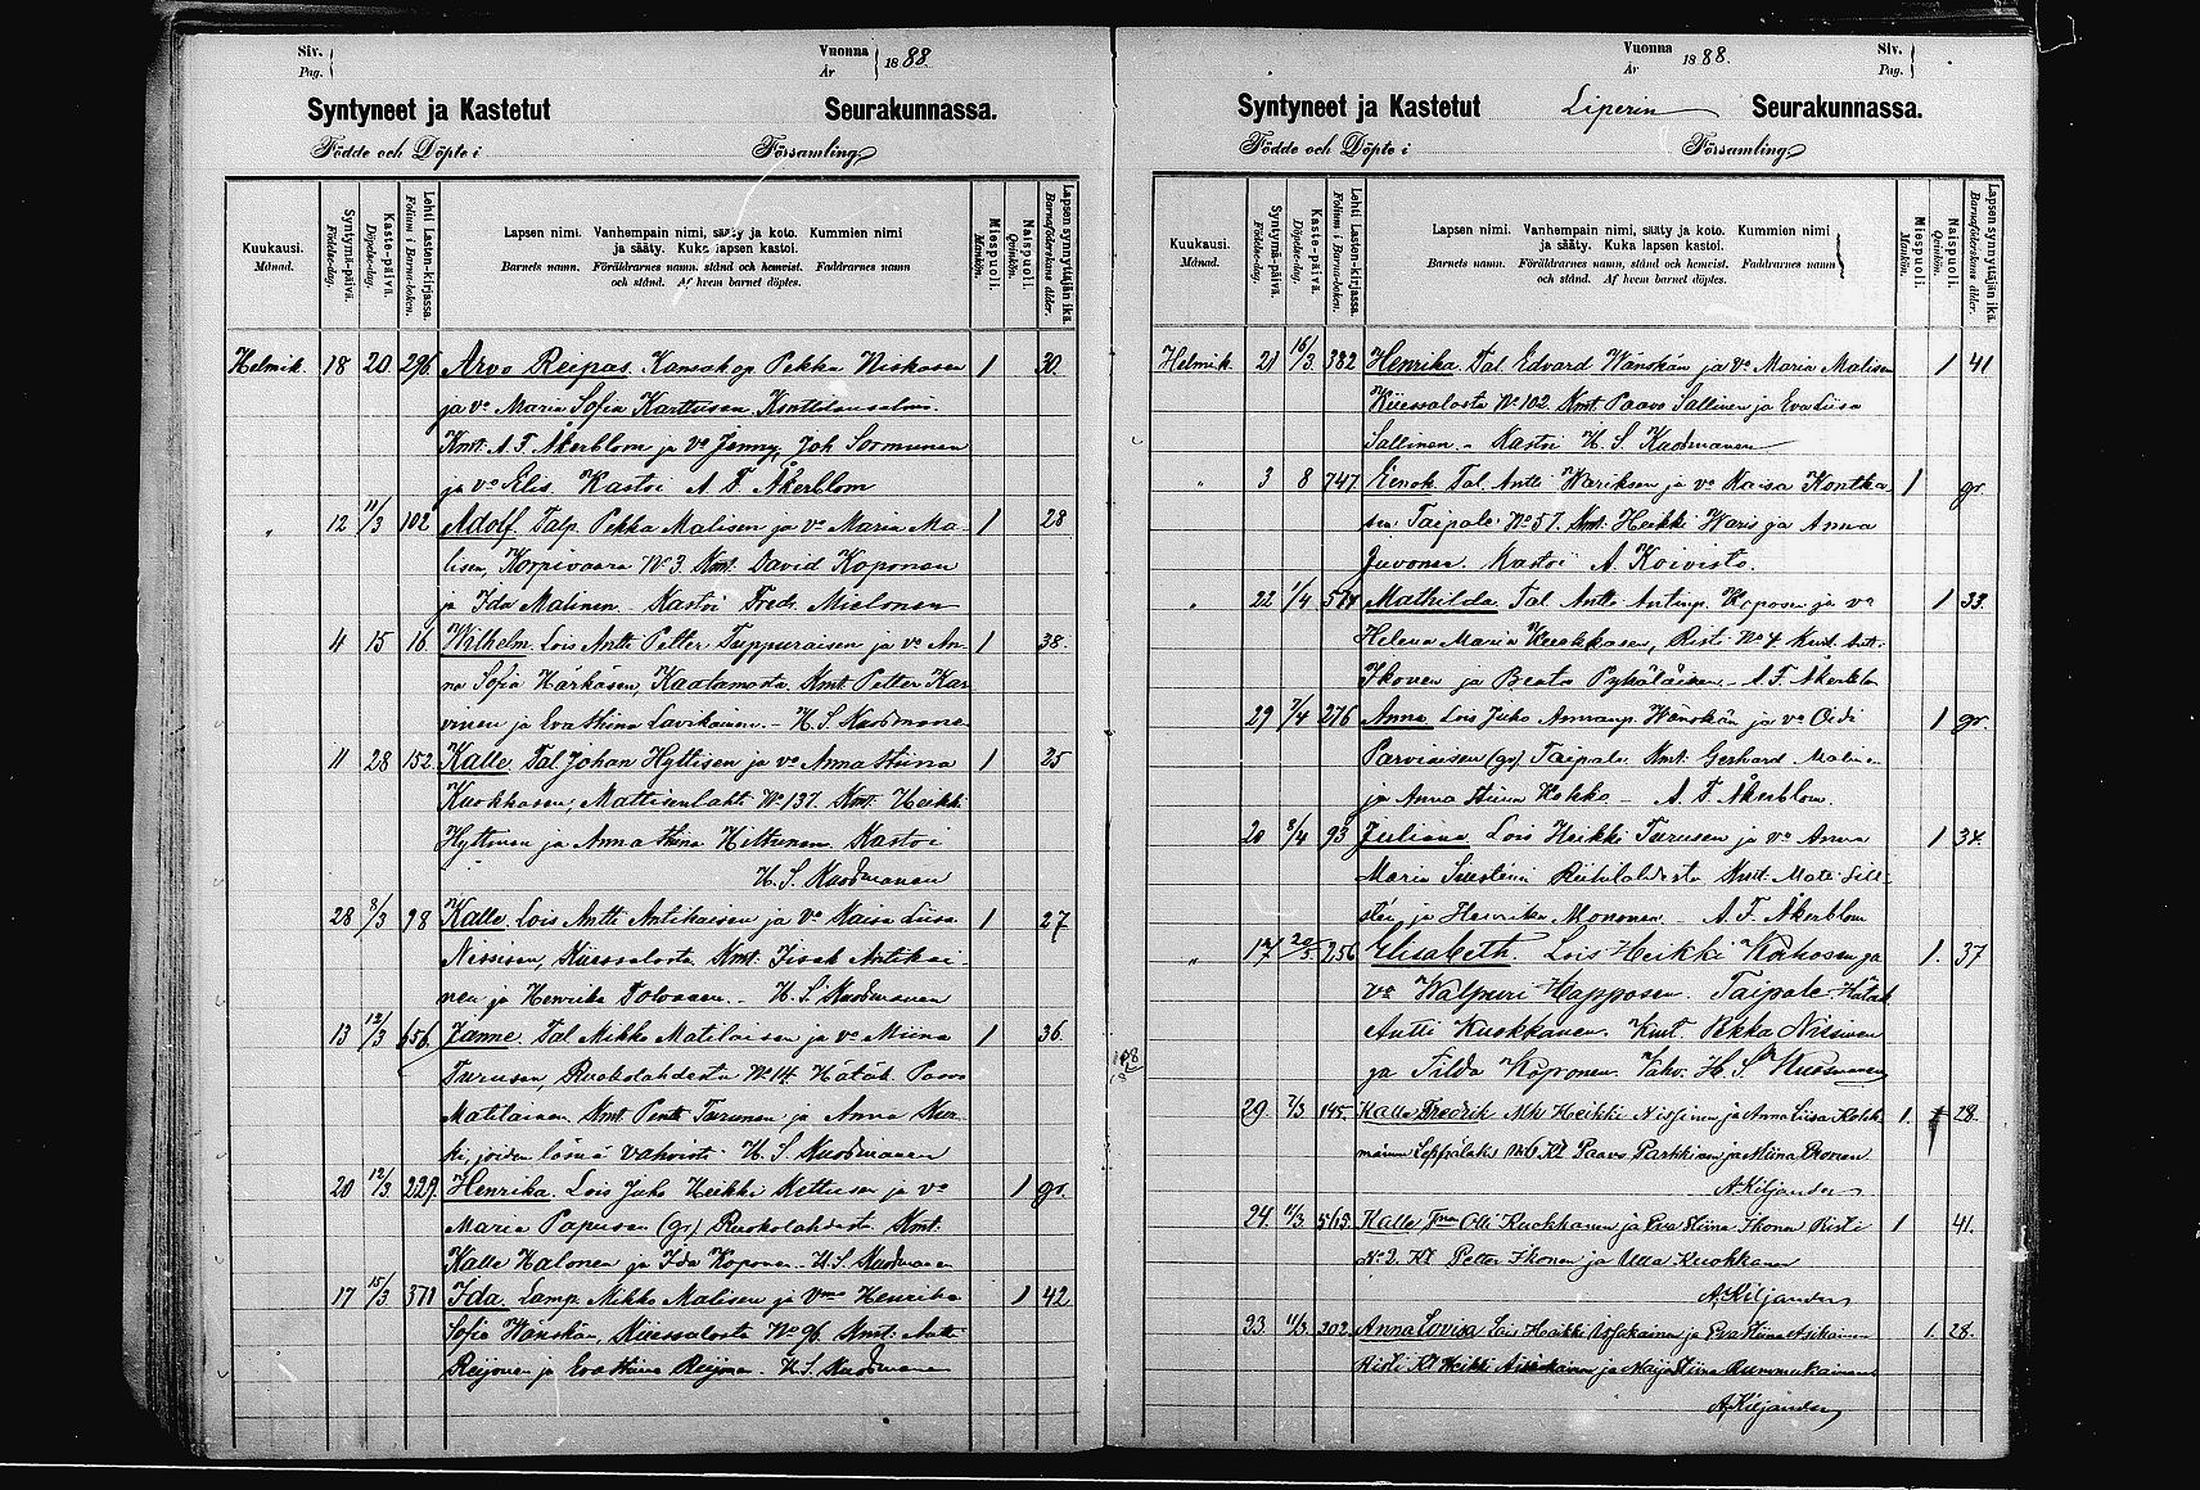 Siv.
Pag.
Vuonna
År
1888.
Syntyneet ja Kastetut Seurakunnassa.
Födde och Döpte i Församling
Kuukausi.
Månad.
Syntymä-päivä.
Födelse-dag.
Kaste-päivä.
Döpelse-dag.
Lehti Lasten-kirjassa.
Folium i Barna-boken.
Lapsen nimi. Vanhempain nimi, sääty ja koto. Kummien nimi
ja sääty. Kuka lapsen kastoi.
Barnets namn. Föräldrarnes namn, stånd och hemvist. Faddrarnes namn
och stånd. Af hvem barnet döptes.
Miespuoli.
Mankön.
Naispuoli.
Qvinkön.
Lapsen synnyttäjän ikä.
Barnaföderskans ålder.
Helmik. 18 20. 296. Arvo Reipas. Kansak op Pekka Niskasen 1 30.
ja vo Maria Sofia Karttusen
Kmt: A. F. Åkerblom ja vo Jenny, Joh Sormunen
ja vo Elis. Kastoi A. F. Åkerblom
" 12 11/3 102 Adolf. Talp. Pekka Malisen ja vo Maria Ma- 1 28
lisen, Korpivaara No 3. Kmt: David Koponen
ja Ida Malinen. Kastoi Fredr. Mielonen
4 15 16. Wilhelm. Lois Antti Petter Tuppuraisen ja vo An- 1 38.
na Sofia Härkäsen, Kaatamosta. Kmt. Petter Kar
vinen ja Eva Stina Lavikainen. - H. S. Kuosmanen
11 28 152. Kalle. Tal. Johan Hyttisen ja vo Anna Stiina 1 25
Kuokkasen, Mattisenlahti No 137. Kmt: Heikki
Hyttinen ja Anna Stina Hiltunen. Kastoi
H. S. Kuosmanen
28 8/3 98 Kalle. Lois Antti Antikaisen ja vo Kaisa Liisa 1 27
Nissisen, Kiessalosta. Kmt: Iisak Antikai-
nen ja Henrika Tolvanen. - H. S. Kuosmanen
13 12/3 656. Janne. Tal. Mikko Matilaisen ja vo Miina 1 36.
Turusen, Ruokolahdesta No 14. Hätäk. Paavo
Matilainen. Kmt. Pentti Turunen ja Anna Kur-
ki, joiden läsnä vahvisti H. S. Kuosmanen
20 12/3. 229. Henrika. Lois Juho Heikki Kettusen ja vo 1 gr.
Maria Papusen (gr) Ruokolahdesta Kmt:
Kalle Halonen ja Ida Koponen - H. S. Kuosmanen
17 15/3. 371 Ida. Lamp. Mikko Malisen ja Vmo Henrika 1 42
Sofia Wänskän, Kiessalosta No 96. Kmt: Antti
Reijonen ja Eva Stiina Reijonen. H. S. Kuosmanen
Vuonna
År
1888.
Siv.
Pag.
Syntyneet ja Kastetut Liperin Seurakunnassa.
Födde och Döpte i Församling
Kuukausi.
Månad.
Syntymä-päivä.
Födelse-dag.
Kaste-päivä.
Döpelse-dag.
Lehti Lasten-kirjassa.
Folium i Barna-boken.
Lapsen nimi. Vanhempain nimi, sääty ja koto. Kummien nimi
ja sääty. Kuka lapsen kastoi.
Barnets namn. Föräldrarnes namn, stånd och hemvist. Faddrarnes namn
och stånd. Af hvem barnet döptes.
Miespuoli.
Mankön.
Naispuoli.
Qvinkön.
Lapsen synnyttäjän ikä.
Barnaföderskans ålder.
Helmik. 21 16/3. 382 Henrika. Tal. Edvard Wänskän ja vo Maria Malisen 1 41
Kiessalosta No 102. Kmt. Paavo Sallinen ja Eva Liisa
Sallinen. - Kastoi H. S. Kuosmanen
" 3 8 747. Eenok Tal. Antti Wariksen ja vo Kaisa Kontka- 1 gr.
sen Taipale No 57. Kmt: Heikki Waris ja Anna
Juvonen. Kastoi A. Koivisto.
" 22 1/4 574 Mathilda. Tal. Antti Antinp. Koposen ja vo 1 33.
Helena Maria Kuokkasen, Risti No 4. Kmt. Antti
Ikonen ja Beata Pyhäläinen. - A. F. Åkerblom
29 7/4 276 Anna. Lois Juho Wänskän ja vo 1 gr.
Parviaisen (gr) Taipale. Kmt: Gerhard Malinen
ja Anna Stiina Kokko - A. F. Åkerblom.
20 8/4 93 Juliana. Lois Heikki Turusen ja vo Anna 1 34.
Maria Riihilahdesta Kmt: Matti
ja Henrika Mononen. - A. F. Åkerblom
" 17 20/5. 256 Elisabeth. Lois Heikki Kohosen ja 1. 37
vo Walpuri Happosen. Taipale. Hätäk
Antti Kuokkanen. Kmt. Pekka Nissinen
ja Tilda Koponen. Vahv. H. S. Kuosmanen
29. 7/3 145. Kalle Fredrik Mk Heikki Nissinen ja Anna Liisa 1. 28.
Leppälaks No 6 Kt Paavo Parkkinen ja Miina Ikonen
A. Kiljander
24. 11/3 565. Kalle Olli Kuokkanen ja Eva Stiina Ikonen Risti 1 41.
No 2. Kt Petter Ikonen ja Ulla Kuokkanen
A. Kiljander
23. 11/3. 302. Anna Lovisa Lois Heikki ja Eva Stiina Asikainen 1. 28.
Risti Kt Heikki Asikainen ja Maija Stiina Rummukainen
A. Kiljander